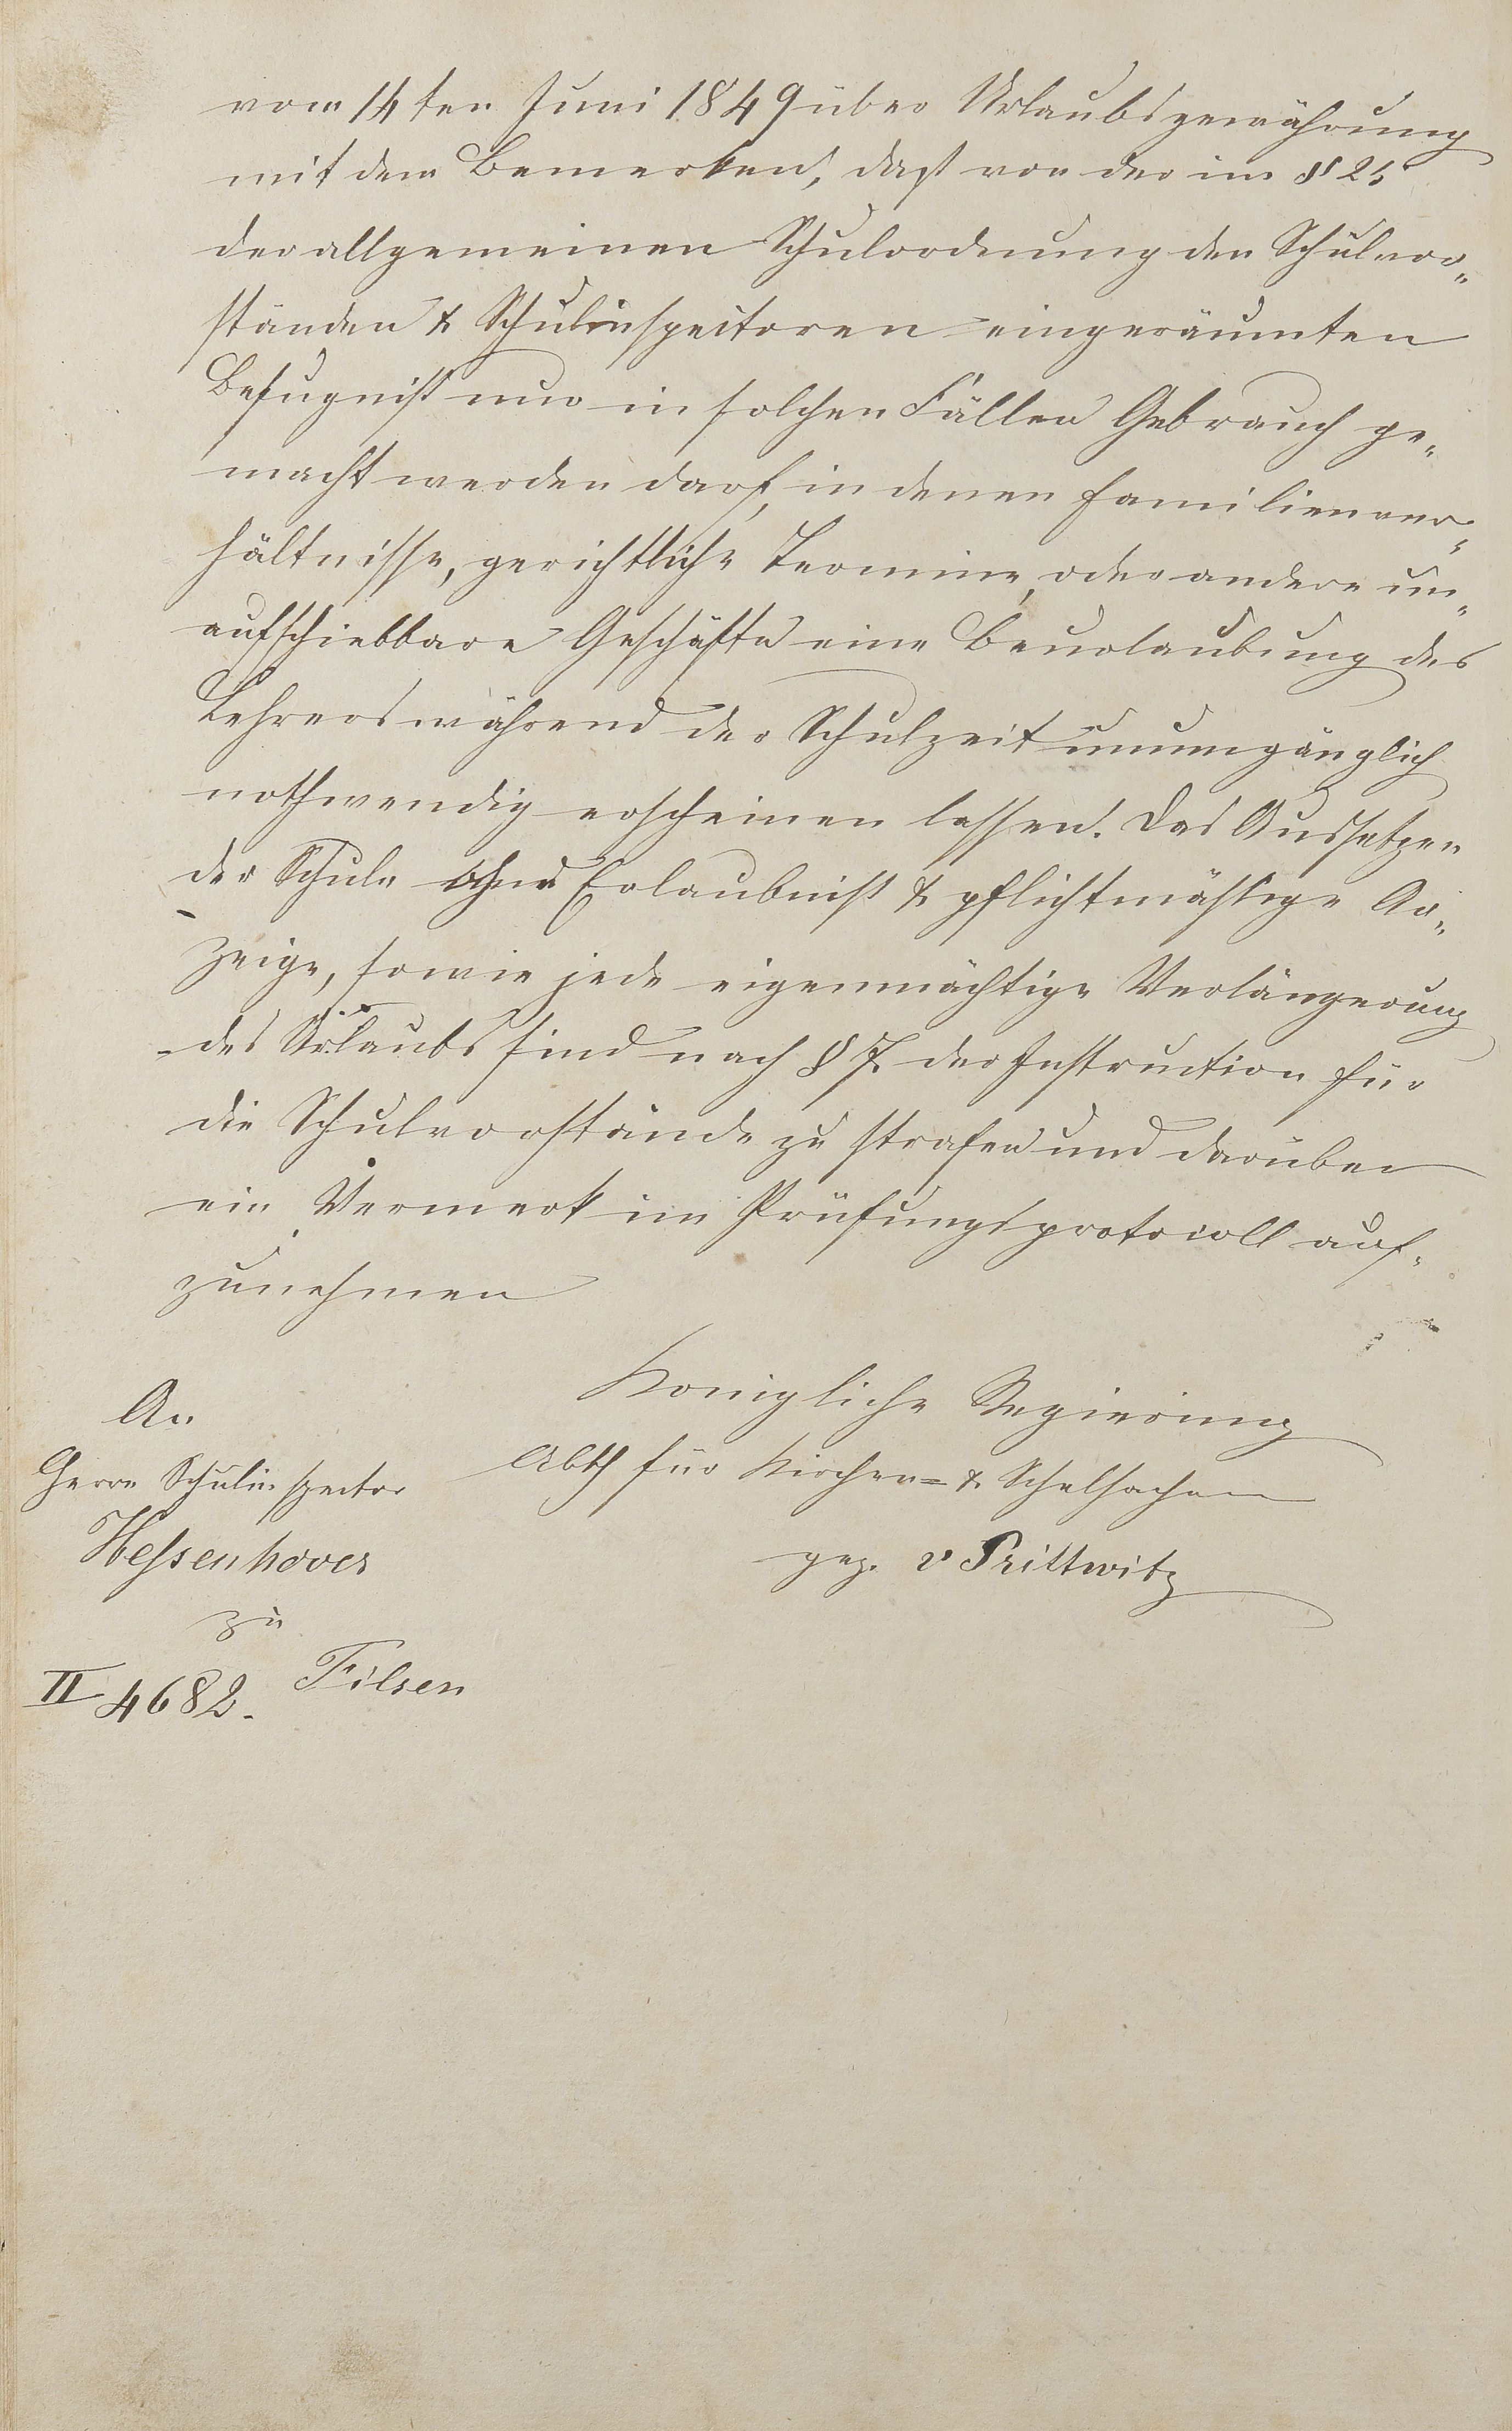 vom 14ten Juni 1849 über Urlaubsgewährung
mit dem Bemerken, daß von der im § 25
der allgemeinen Schulordnung den Schulvor-
ständen & Schulinspectoren eingeräumten
Befugniß nur in solchen Fällen Gebrauch ge-
macht werden darf, in denen Familienver-
hältnisse, gerichtliche Termine, oder andere un-
aufschiebbare Geschäfte eine Beurlaubung des
Lehrers während der Schulzeit unumgänglich
nothwendig erscheinen lassen. Das Aussetzen
der Schule ohne Erlaubniß & pflichtmäßige An-
zeige, sowie jede eigenmächtige Verlängerung
des Urlaubs sind nach § 7 der Instruction für
die Schulvorstände zu strafen und darüber
ein Vermerk im Prüfungsprotocoll auf-
zunehmen
Königliche Regierung
Abth für Kirchen- & Schulsachen
gez. v Prittwitz
An
Herrn Schulinspector
Hessenhover
zu
Filsen
II 4682.